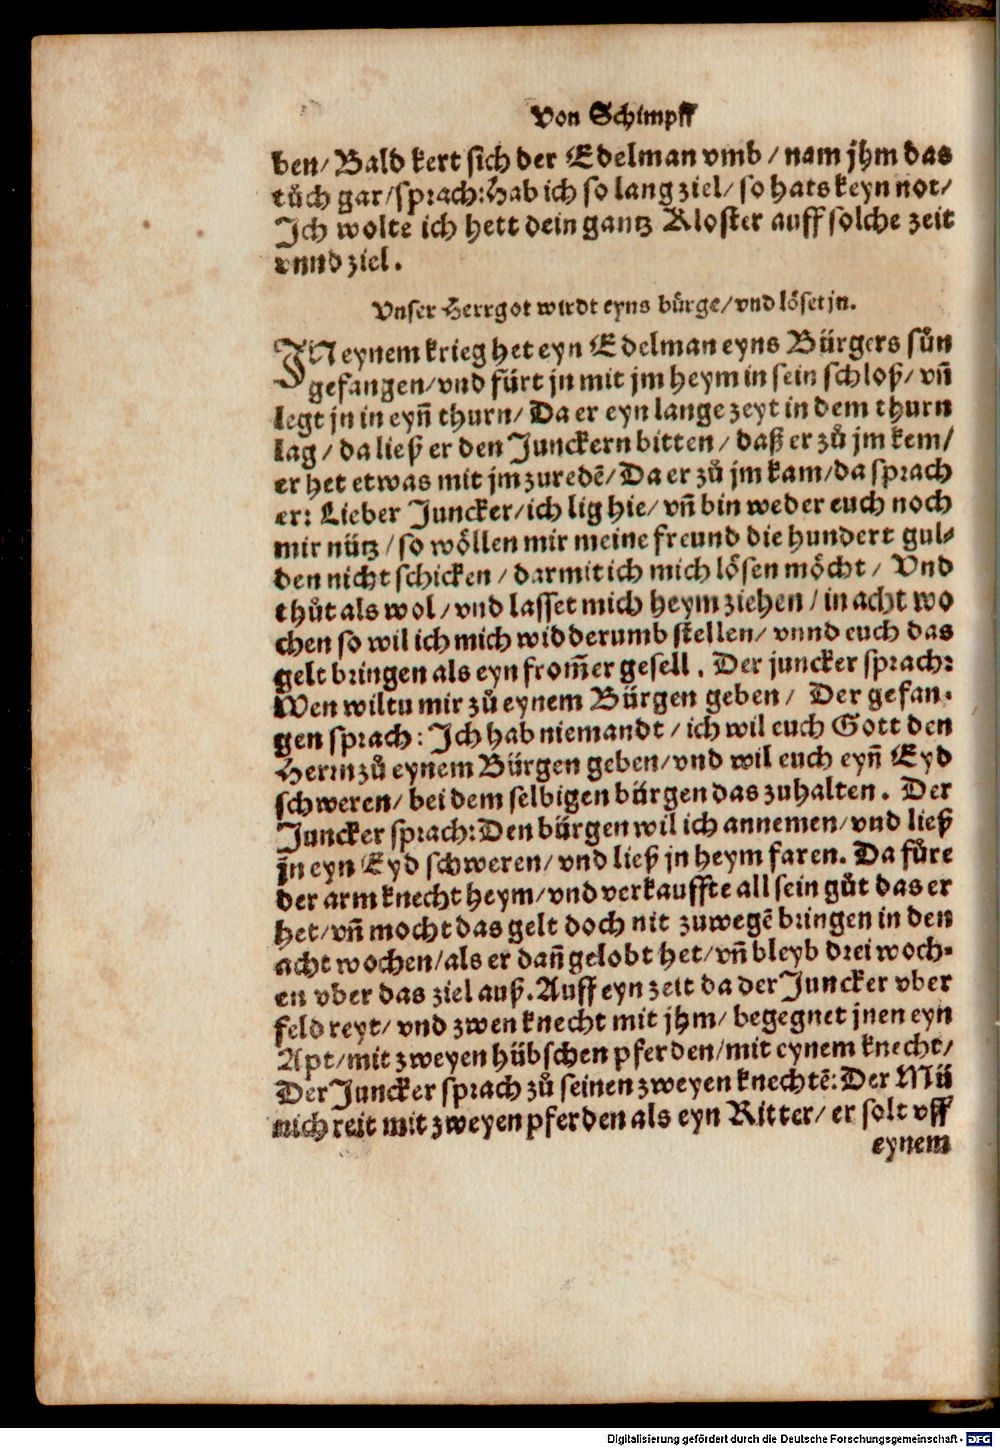 Von Schimpff
ben/ Bald kert sich der Edelman vmb / nam jhm das
tůch gar/sprach: Hab ich so lang ziel/ so hats keyn not/
Ich wolte ich hett dein gantz Kloster auff solche zeit
vnnd ziel.
Vnser Herrgot wirdt eyns bůrge/vnd lőset jn.
IN eynem krieg het eyn Edelman eyns Bürgers sůn
gefangen/vnd fürt jn mit jm heym in sein schloß/ vñ
legt jn in eyñ thurn/ Da er eyn lange zeyt in dem thurn
lag / da ließ er den Junckern bitten / daß er zů jm kem/
er het etwas mit jm zuredẽ/ Da er zů jm kam/da sprach
er: Lieber Juncker/ich lig hie/ vñ bin weder euch noch
mir nütz / so wöllen mir meine freund die hundert gul-
den nicht schicken / darmit ich mich lösen möcht / Vnd
thůt als wol / vnd lasset mich heym ziehen / in acht wo
chen so wil ich mich widderumb stellen/ vnnd euch das
gelt bringen als eyn from̃er gesell. Der juncker sprach:
Wen wiltu mir zů eynem Bürgen geben / Der gefan-
gen sprach: Ich hab niemandt / ich wil euch Gott den
Herrn zů eynem Bürgen geben/vnd wil euch eyñ Eyd
schweren/ bei dem selbigen bürgen das zuhalten. Der
Juncker sprach: Den bürgen wil ich annemen/vnd ließ
jn eyn Eyd schweren/ vnd ließ jn heym faren. Da fůre
der arm knecht heym/vnd verkauffte all sein gůt das er
het/vñ mocht das gelt doch nit zuwegẽ bringen in den
acht wochen/als er dañ gelobt het/vñ bleyb drei woch-
en vber das ziel auß. Auff eyn zeit da der Juncker vber
feld reyt/ vnd zwen knecht mit jhm/ begegnet jnen eyn
Apt/mit zweyen hübschen pferden/mit eynem knecht/
Der Juncker sprach zů seinen zweyen knechtẽ: Der Mü
nich reit mit zweyen pferden als eyn Ritter/ er solt vff
eynem
Digitalisierung gefördert durch die Deutsche Forschungsgemeinschaft - DFG